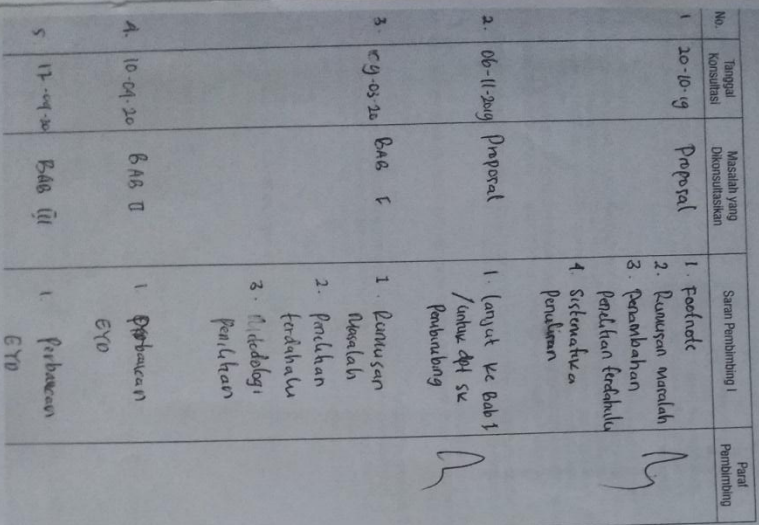 No.
Tanggal
Konsultasi
Masalah yang
Dikonsultasikan
Saran Pembimbing I
Paraf
Pembimbing
1
20-10-19
Proposal
1. Footnote
2. Rumusan Masalah
3. Penambahan
Penelitian terdahulu
4. Sistematika
Penulisan
2.
06-11-2019
Proposal
1. Lanjut ke Bab 1
/untuk dpt SK
Pembimbing
3.
09-03-20
BAB I
1. Rumusan
Masalah
2. Penelitian
terdahulu
3. Metodologi
Penelitian
4.
10-04-20
BAB II
1. Perbaikan
EYD
5.
17-04-20
BAB III
1. Perbaikan
EYD